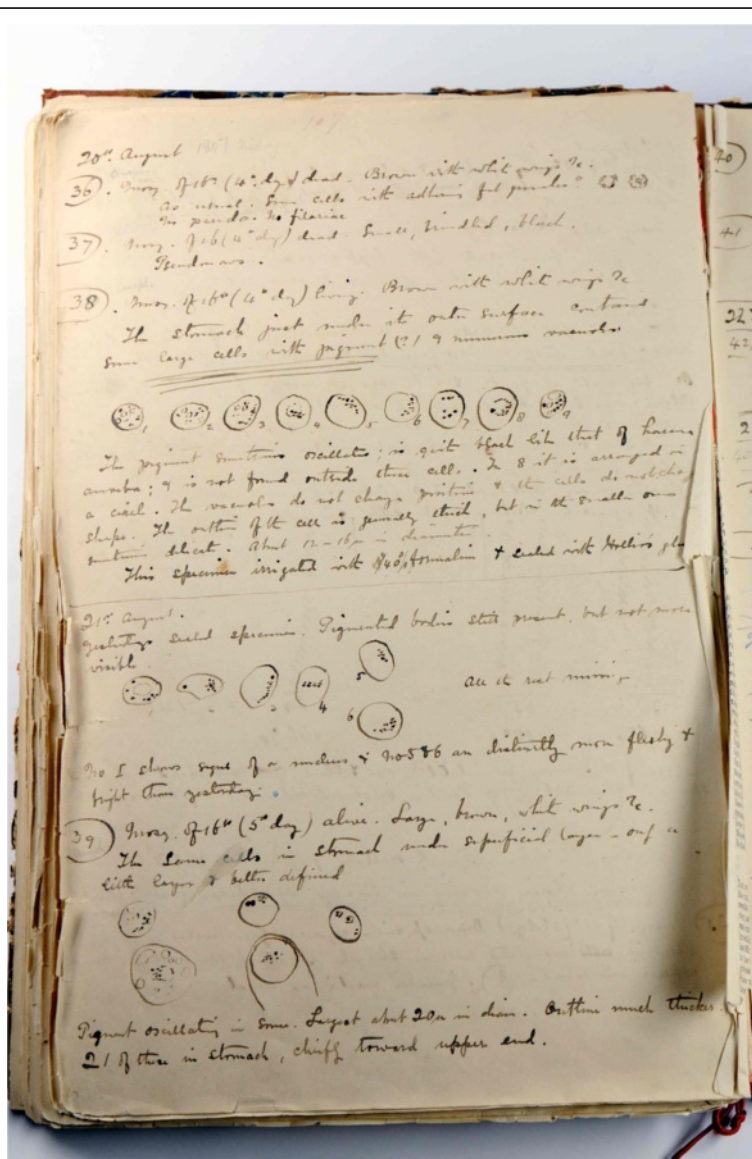 107
20th August 1897
36. Mosq. of 16th (4th day) dead. Brown with white wings &c.
As usual. Some cells with adhering
No pseudos. No filariae
37. Mosq. of 16 (4th day) dead. Small, brindled, black.
38. Mosq. of 16th (4th day) living. Brown with white wings &c
The stomach just under its outer surface contained
some large cells with pigment (?) & numerous vacuoles
1 2 3 4 5 6 7 8 9
The pigment sometimes oscillates; is quite black like that of
amoeba; & is not found outside these cells. In 8 it is arranged in
a circle. The vacuoles do not change position & the cells do not change
shape. The outline of the cell is generally thick, but in the smaller ones
sometimes delicate. About 12-16µ in diameter.
This specimen irrigated with 40% formalin & sealed with Hollis's glue
21st August.
Yesterday's sealed specimen. Pigmented bodies still present, but not more
visible.
3 4 5 6
All the rest
No 1 shows signs of a nucleus & No 5 & 6 are distinctly more fleshy &
bright than yesterday.
39. Mosq. of 16th (5th day) alive. Large, brown, white wings &c.
The same cells in stomach under superficial layer - only a
little larger & better defined
Pigment oscillating in some. Largest about 20µ in diam. Outline much thicker
21 of these in stomach, chiefly toward upper end.
40
41
42